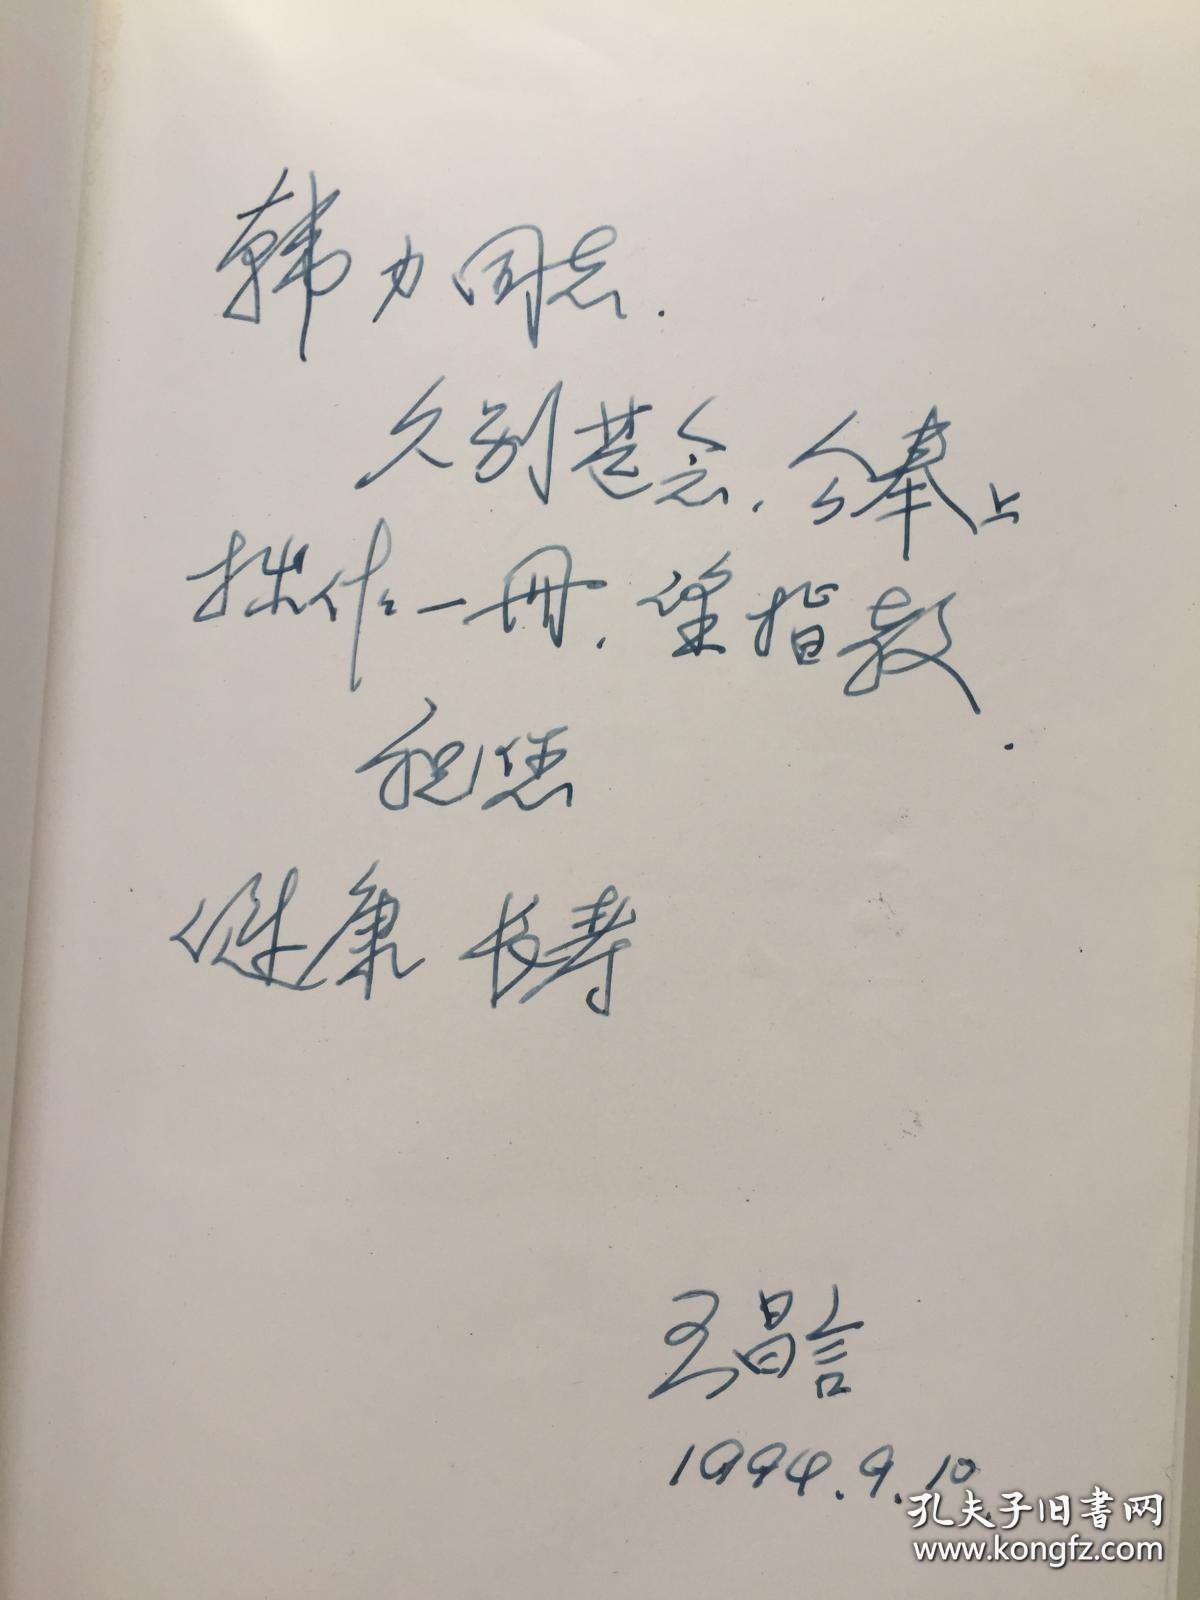 韩力同志.
久别甚念.今奉上
拙作一册.望指教.
祝您
健康长寿
王昌言
1994.9.10
孔夫子旧书网
www.kongfz.com